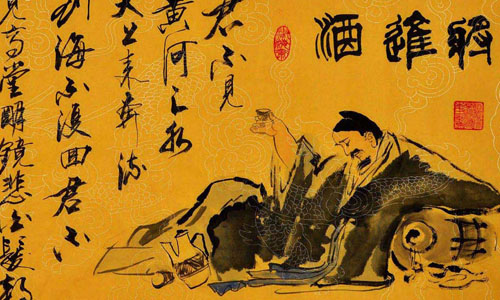 將進酒
君不見
黄河之水
天上來奔流
到海不復回君不
見高堂明鏡悲白髮朝